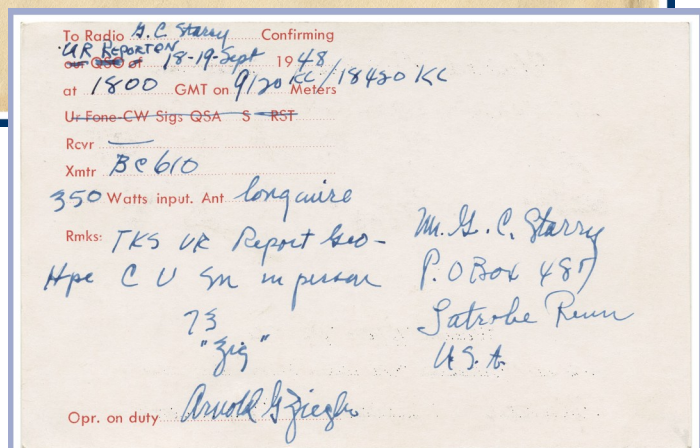 To Radio G.C Starry Confirming
UR REPORT ON
our QSO of 18-19-Sept 1948
at 1800 GMT on 9120 KC/18420 KC Meters
Ur Fone-CW Sigs QSA S RST
Rcvr —
Xmtr BC610
350 Watts input. Ant longwire
Rmks: TKS UR Report Geo-
Hpe C U Sn in person
73
"Zig"
Opr. on duty Arnold G Ziegler
Mr. G. C. Starry
P.O Box 487
Latrobe Penn
U.S.A.